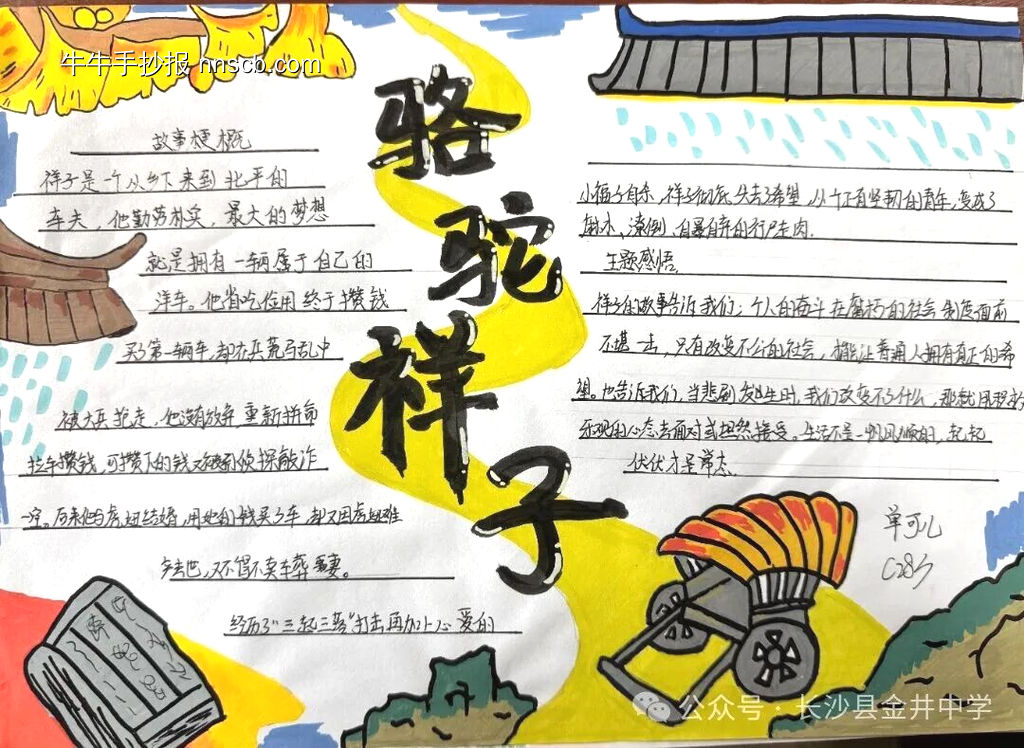 牛牛手抄报 hnscb.com
骆驼祥子
故事梗概
祥子是一个从乡下来到北平的
车夫，他勤劳朴实，最大的梦想
就是拥有一辆属于自己的
洋车。他省吃俭用终于攒钱
买了第一辆车，却在兵荒马乱中
被大兵抢走，他没有放弃重新拼命
拉车攒钱，可攒下的钱又被侦探敲诈
一空。后来他与虎妞结婚，用她的钱买了车，却又因虎妞难
产去世，又不得不卖车葬妻。
经历了"三起三落"打击再加上心爱的
小福子自杀，祥子彻底失去了希望，从一个正有坚韧的青年，变成了
麻木、潦倒、自暴自弃的行尸走肉。
主题感悟
祥子的故事告诉我们：个人的奋斗在腐朽的社会制度面前
不堪一击，只有改变不公的社会，才能让普通人拥有真正的希
望。也告诉我们，当悲剧发生时，我们改变不了什么，那就用积极
乐观的心态去面对或坦然接受。生活不是一帆风顺的，起起
伏伏才是常态
单可儿
C285
公众号·长沙县金井中学